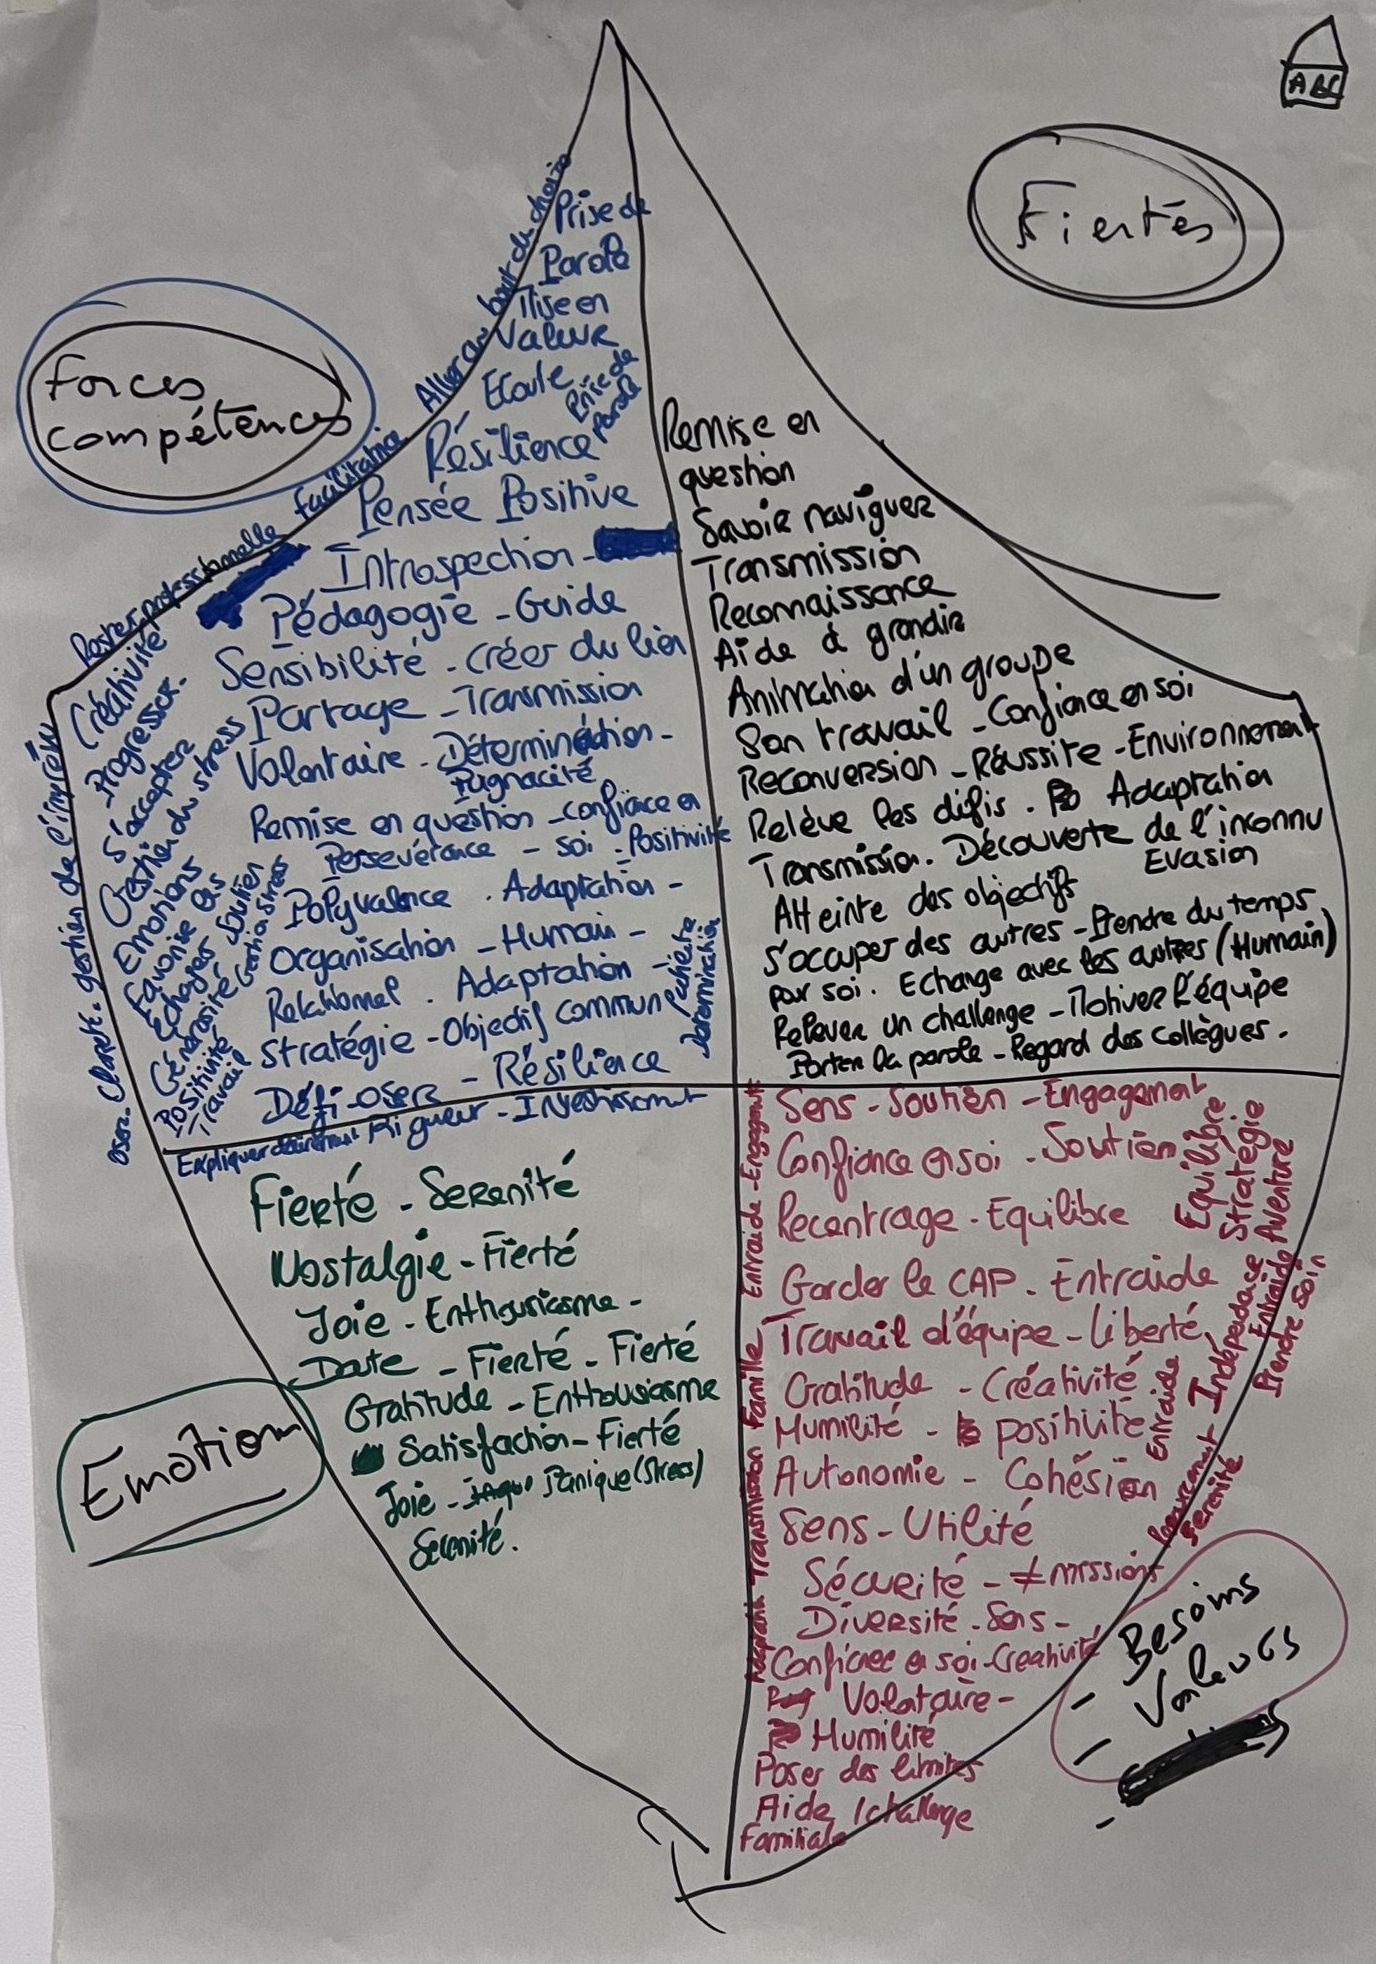 ABC
Fiertés
Forces
compétences
Aller au bout du choix
Prise de
Parole
Mise en
Valeur
Ecoute
Prise de
parole
Résilience
Pensée Positive
Introspection -
Pédagogie - Guide
Sensibilité - Créer du lien
Partage - Transmission
Volontaire - Détermination -
Pugnacité
Remise en question - confiace en
Persévérance - soi - Positivité
Polyvalence . Adaptation -
Organisation - Humain -
Relationnel . Adaptation -
Stratégie - Objectif commun
Défi - oser - Résilience
Rigueur - Investissement
Rester professionnelle facilitatrice
Créativité
Progresser -
S'accepter
Gestion du stress
Emotions
Favorise les
Echages Soutien
Générosité Gestion Stress
Positivité
Travail
gestion de l'imprévu
Oser
Détermination
Remise en
question
Savoir naviguer
Transmission
Reconnaissance
Aide à grandir
Animation d'un groupe
Son travail - Confiance en soi
Reconversion - Réussite - Environnement
Relève les défis . Adaptation
Transmission . Découverte de l'inconnu
Evasion
Atteinte des objectifs
S'occuper des autres - Prendre du temps
pour soi . Echange avec les autres (Humain)
Relever un challenge - Motiver l'équipe
Porter la parole - Regard des collègues .
Fierté - Serenité
Nostalgie - Fierté
Joie - Enthousiasme -
Doute - Fierté - Fierté
Gratitude - Enthousiasme
Satisfaction - Fierté
Joie - Panique (Stress)
Serenité .
Emotion
Sens - Soutien - Engagement
Confiance en soi - Soutien
Recentrage - Equilibre
Garder le CAP - Entraide
Travail d'équipe - Liberté
Gratitude - Créativité
Humilité - positivité
Autonomie - Cohésion
Sens - Utilité
Sécurité - ≠ missions
Diversité - Sens -
Confiance en soi - Creativité
Volontaire -
Humilité
Poser des limites
Aide / challenge
Familiale
Entraide - Engagement
Transmission Famille
Equilibre
Stratégie
Aventure
Entraide
Indépendace
Entraide
Prendre soin
Serenité
- Besoins
- Valeurs
-